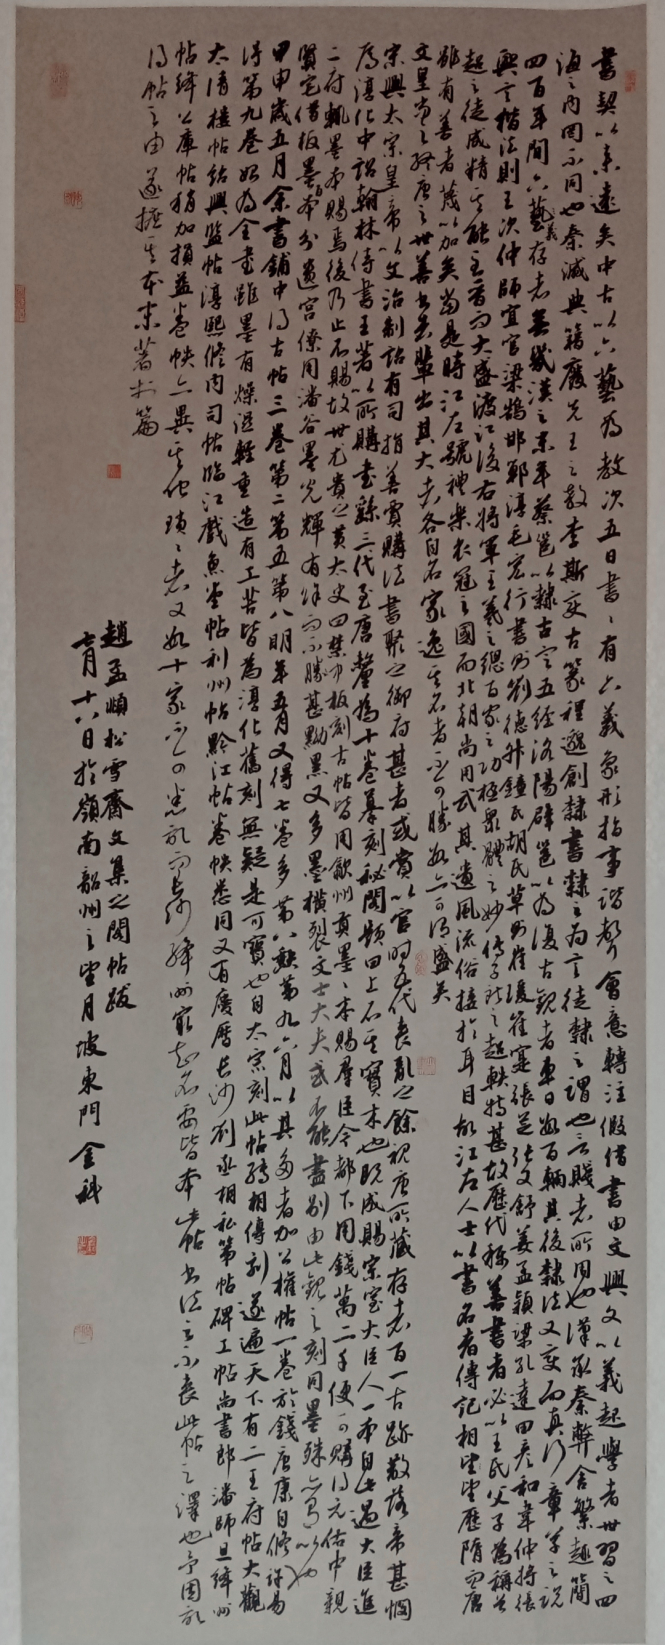 書契以來遠矣中古以六藝為教次五曰書書有六義象形指事諧聲會意轉注假借書由文興文以義起學者世習之四
海之內罔不同也秦滅典籍廢先王之教李斯變古篆程邈創隸書隸之為言徒隸之謂也言賤者所用也漢承秦弊舍繁趨簡
四百年間六藝存者無幾漢之末年蔡邕以隸古定五經洛陽辟雍以為復古觀者車日數百輛其後隸法又變而真行章草之說
興言楷法則王次仲師宜官梁鵠邯鄲淳毛宏行書則劉德昇鍾氏胡氏草則崔瑗崔寔張芝張文舒姜孟穎梁孔達田彥和韋仲將張
超之徒咸精其能至晉而大盛渡江後右將軍王羲之總百家之功極眾體之妙傳子獻之超軼特甚故歷代稱善書者必以王氏父子為稱首
雖有善者蔑以加矣當是時江左號禮樂衣冠之國而北朝尚用武其遺風流俗接於耳目故江左人士以書名者傳記相望歷隋而唐
文皇尚之終唐之世善書者輩出其大者各自名家逸其名者不可勝數亦可謂盛矣
宋興太宗皇帝以文治制詔有司捐善賈購法書聚之御府甚者或賞以官時五代喪亂之餘視唐所藏存者百一古跡散落帝甚憫
焉淳化中詔翰林侍書王著以所購書繇三代至唐釐為十卷摹刻秘閣題曰上石其實木也既成賜宗室大臣人一本自此遇大臣進
二府輒墨本賜焉後乃止不賜故世尤貴之黃太史曰禁中板刻古帖皆用歙州貢墨墨本賜群臣今都下用錢萬二千便可購得元佑中親
賢宅借板墨百本分遺宮僚用潘谷墨光輝有餘而不勝甚黝黑又多墨橫裂文士大夫或不能盡別由此觀之刻同墨殊亦有以也
甲申歲五月余書鋪中得古帖三卷第二第五第八明年五月又得七卷多第八缺第九六月以其多者加公權帖一卷於錢唐康自修許易
得第九卷始為全書雖墨有燥濕輕重造有工苦皆為淳化舊刻無疑是可寶也自太宗刻此帖轉相傳刻遂遍天下有二王府帖大觀
太清樓帖紹興監帖淳熙修內司帖臨江戲魚堂帖利州帖黔江帖卷帙悉同又有慶曆長沙劉丞相私第帖碑工帖尚書郎潘師旦絳州
帖絳公庫帖稍加損益卷帙亦異其他瑣瑣者又數十家不可悉記而長沙絳州最知名要皆本此帖書法之不喪此帖之澤也予因記
得帖之由遂摭其本末著於篇
趙孟頫松雪齋文集之閣帖跋
七月十八日於嶺南韶州之望月坡東門金科